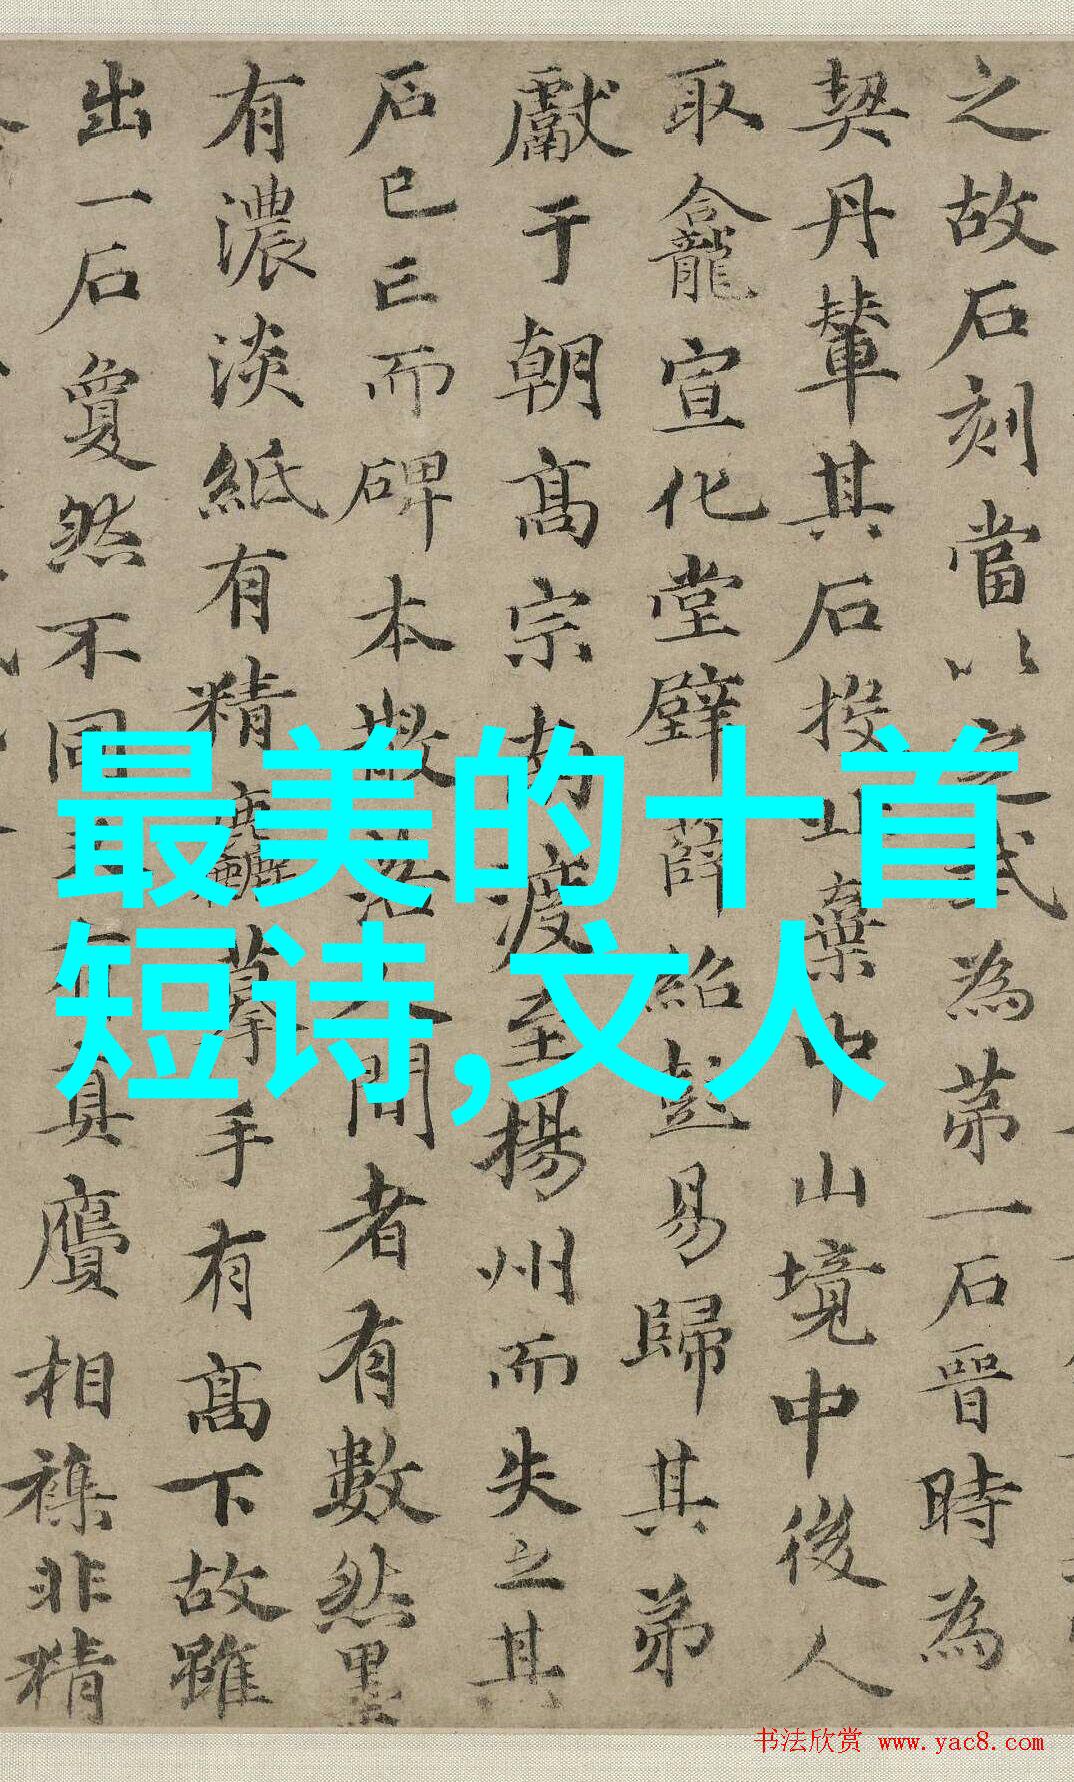 最美的十首
短诗,文人
之故石刻當以之武為苐一石晉時為
契丹輦其石投山棄中山境中後人
取龕宣化堂壁薛紹彭易歸其弟
獻于朝高宗南渡至揚州而失之其
石已亡而碑本散落人間者有數然墨
有濃淡紙有精麄摹手有高下故雖
出一石夐然不同真贋相襍非精
书法欣赏 www.yac8.com